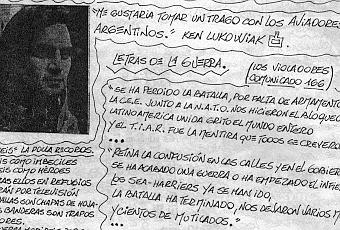 "ME GUSTARIA TOMAR UN TRAGO CON LOS AVIADORES
ARGENTINOS." KEN LUKOWIAK
LETRAS DE LA GUERRA.
(LOS VIOLADORES
COMUNICADO 166)
"SE HA PERDIDO LA BATALLA, POR FALTA DE ARMAMENTO
LA C.E.E. JUNTO A LA N.A.T.O. NOS HICIERON EL BLOQUEO
LATINOAMERICA UNIDA GRITO EL MUNDO ENTERO
Y EL T.I.A.R. FUE LA MENTIRA QUE TODOS SE CREYERON
...
"REINA LA CONFUSIÓN EN LAS CALLES Y EN EL GOBIER
SE HA ACABADO UNA GUERRA O HA EMPEZADO EL INFIE
LOS SEA-HARRIERS YA SE HAN IDO,
LA BATALLA HA TERMINADO, NOS DEJARON VARIOS M
Y CIENTOS DE MUTILADOS."
EIS" LA POLLA RECORDS.
IS COMO IMBECILES
IS COMO HÉROES
RAS ELLOS EN REFUGIOS
RÁN POR TELEVISIÓN
ALLAS SON CHAPAS DE HOJA-
S BANDERAS SON TRAPOS